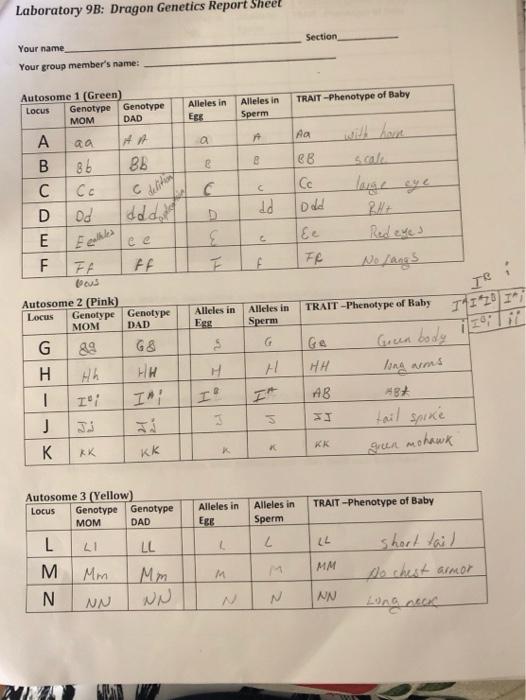 Laboratory 9B: Dragon Genetics Report Sheet
Section
Your name
Your group member's name:
Autosome 1 (Green)
Locus Genotype MOM Genotype DAD Alleles in Egg Alleles in Sperm TRAIT –Phenotype of Baby
A aa AA a A Aa with horn
B Bb e B eB scale
C Cc C deletion C c Cc large eye
D Dd ddd D dd Ddd RH+
E E ee E e Ee Red eyes
F Ff ff F f No fangs
locus
Autosome 2 (Pink)
Locus Genotype MOM Genotype DAD Alleles in Egg Alleles in Sperm TRAIT –Phenotype of Baby
G gg Gg g G Gg Green body
H Hh HH H H HH long arms
I Iᴮi Iᴬi Iᴮ Iᴬ AB AB+
J Jj Jj J J JJ tail spike
K KK KK K K KK green mohawk
Iᴮ i
Iᴬ IᴬIᴮ Iᴬi
i Iᴮi ii
Autosome 3 (Yellow)
Locus Genotype MOM Genotype DAD Alleles in Egg Alleles in Sperm TRAIT –Phenotype of Baby
L Ll LL L L LL short tail
M Mm Mm M M MM No chest armor
N NN NN N N NN Long neck